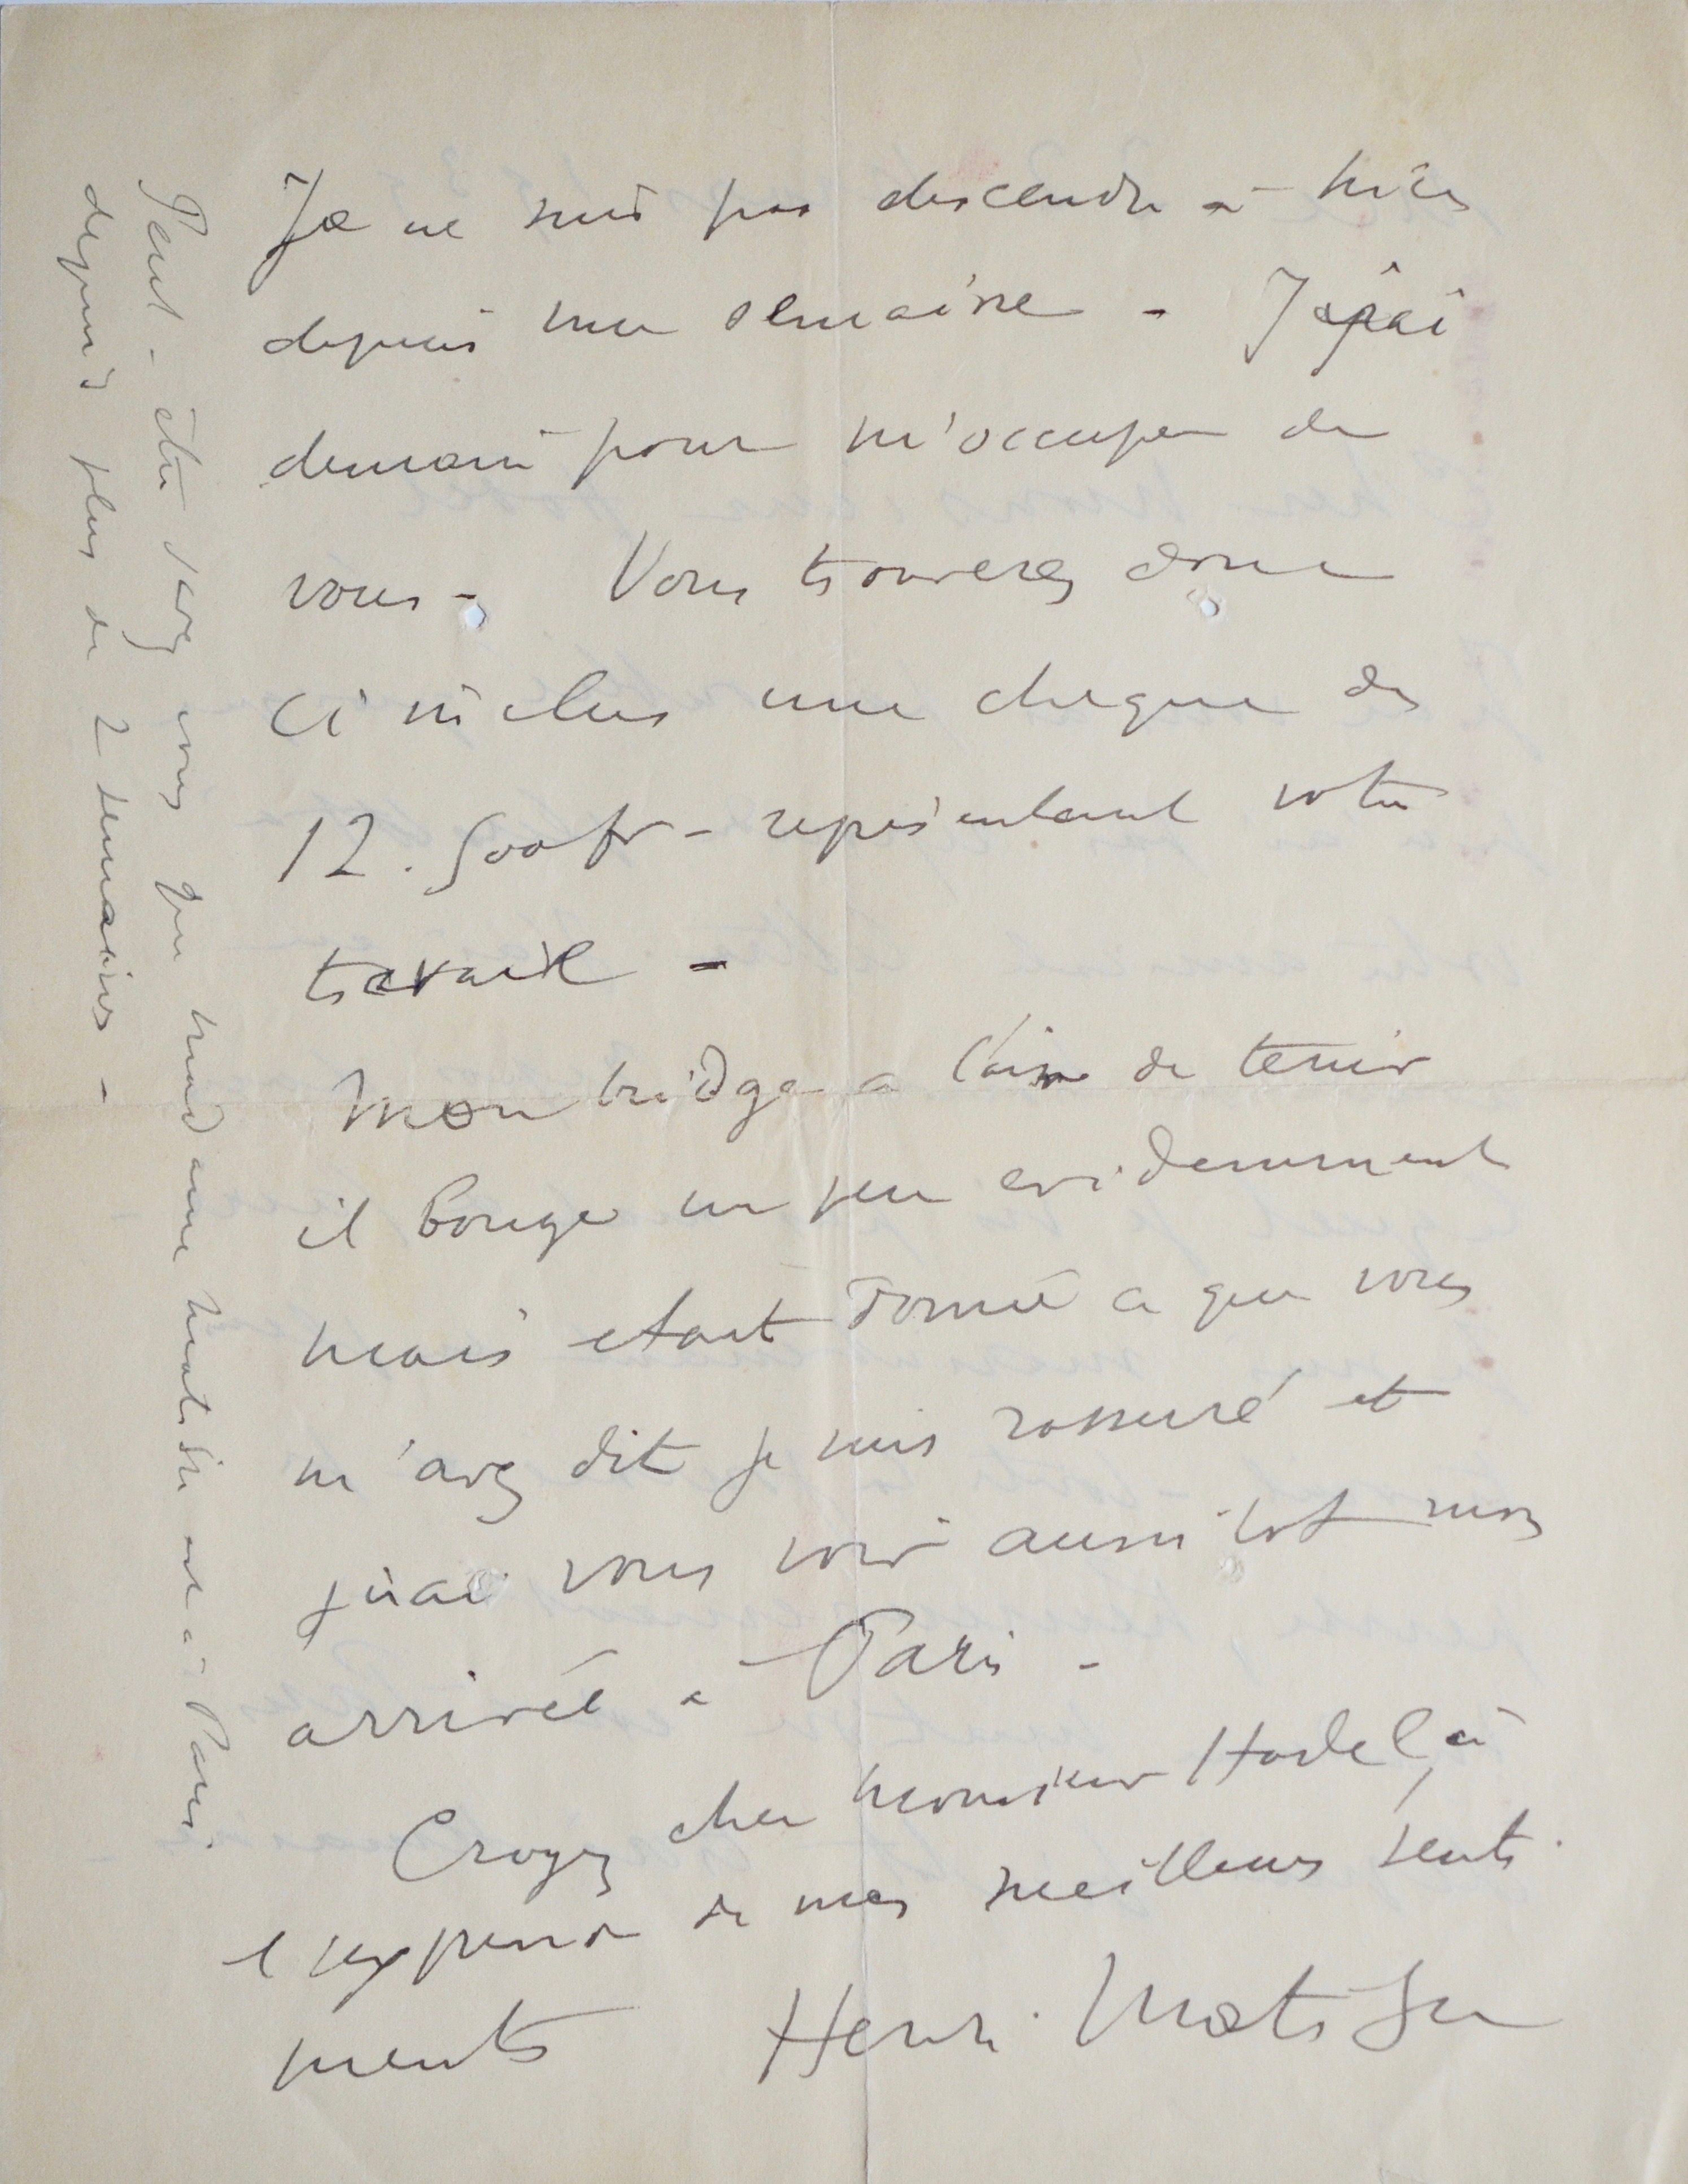 Je ne suis pas descendu à Nice
depuis une semaine - J'irai
demain pour m'occuper de
vous - Vous trouverez donc
ci inclus une cheque de
12.500 fr - représentant votre
travail -
Mon bridge a l'air de tenir
il bouge un peu evidemment
mais etant donné ce que vous
m'avez dit je suis rassuré et
j'irai vous voir aussitot mon
arrivée à Paris -
Croyez cher Monsieur Hodel, à
l'expression de mes meilleurs senti-
ments Henri Matisse
Peut-être savez vous que Madame Matisse est à Paris
depuis plus de 2 semaines -